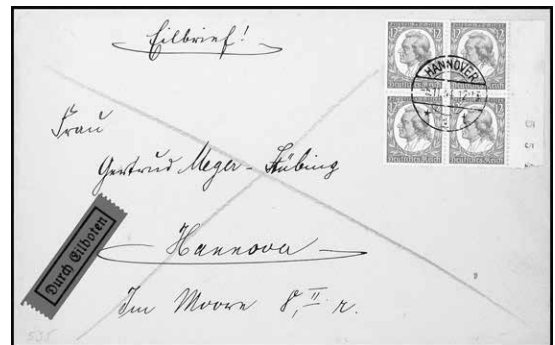 Eilbrief!
12 12
HANNOVER
Deutsches Reich Deutsches Reich
Frau
Gertrud Meyer-Hübing
Hannover
Im Moore 8, II. r.
Durch Eilboten
535